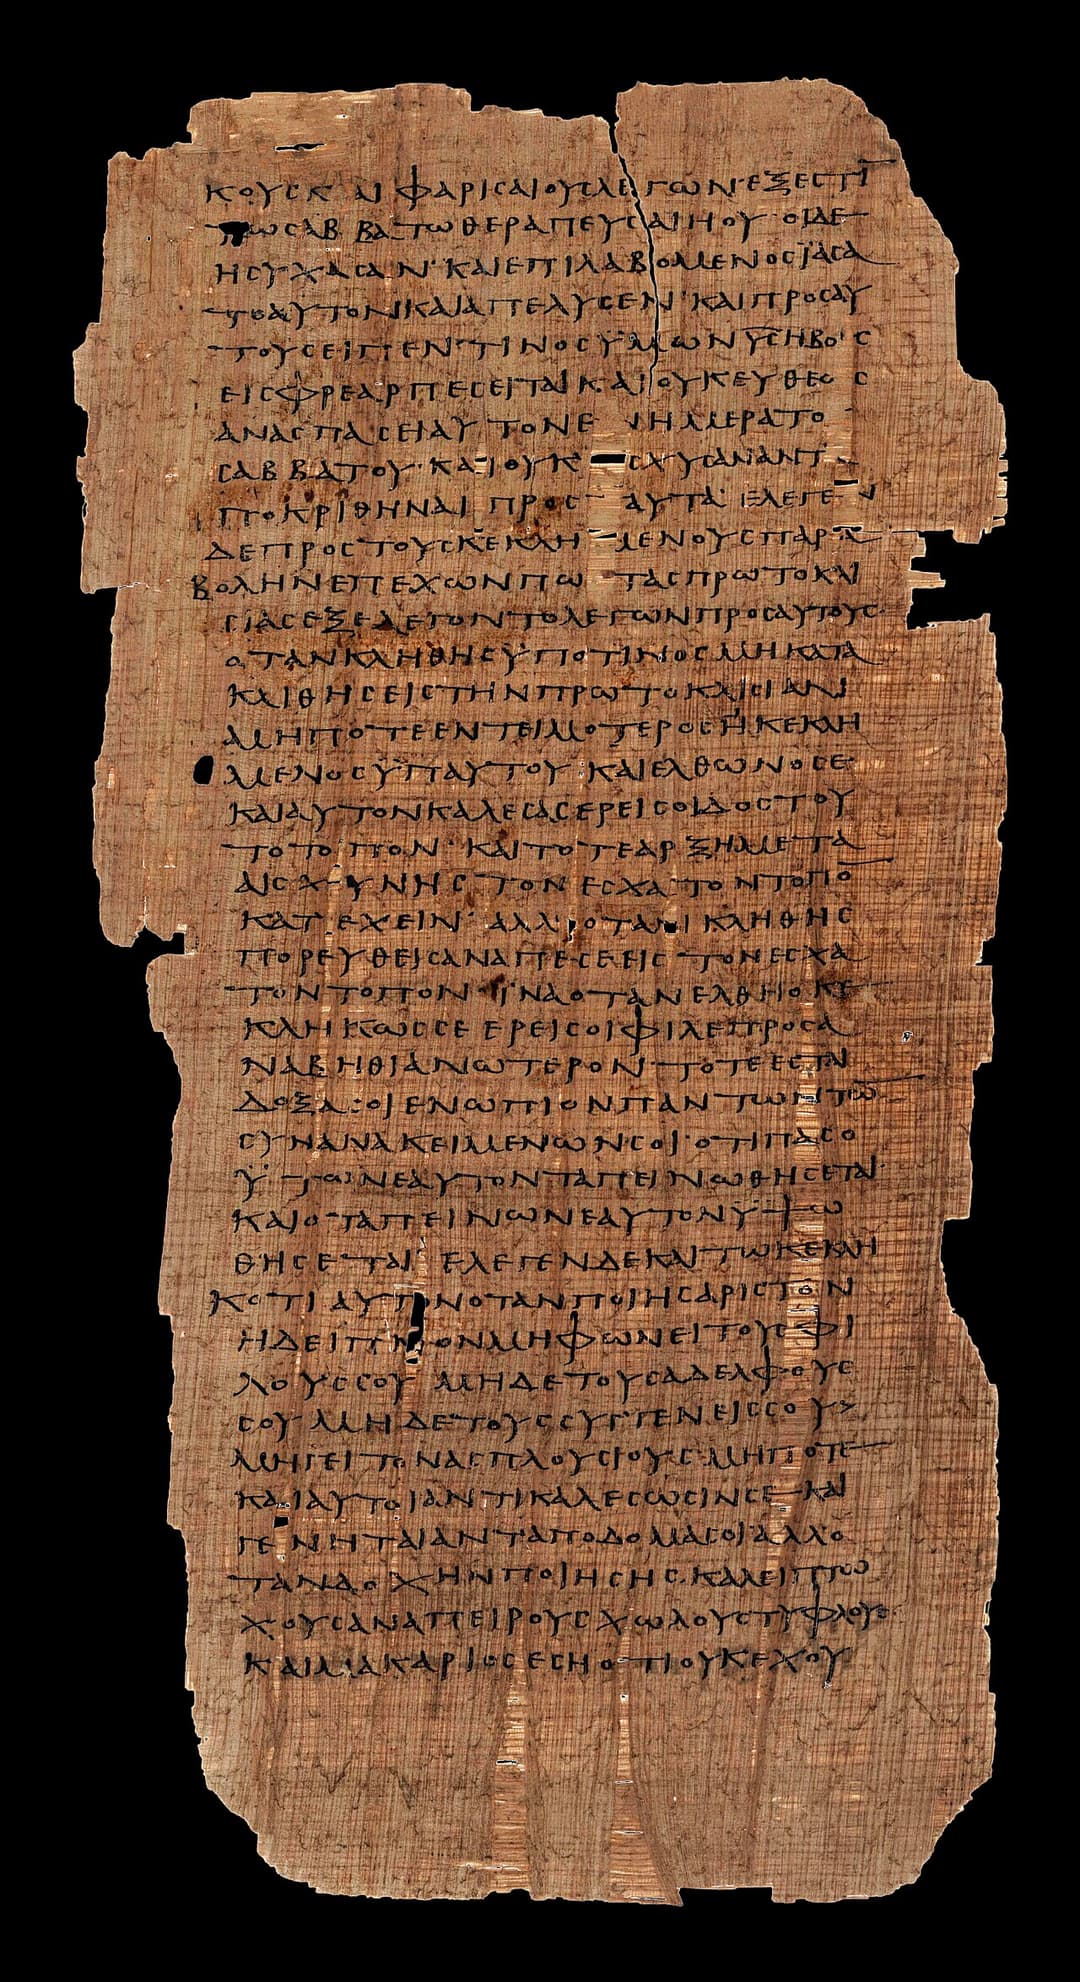 ΚΟΥϹΚΑΙΦΑΡΙϹΑΙΟΥϹΛΕΓΩΝ·ΕΞΕϹΤΙ̅
ΤΩϹΑΒΒΑΤΩΘΕΡΑΠΕΥϹΑΙΗΟΥ·ΟΙΔΕ
ΗϹΥΧΑϹΑΝ·ΚΑΙΕΠΙΛΑΒΟΜΕΝΟϹΪΑϹΑ
ΤΟΑΥΤΟΝΚΑΙΑΠΕΛΥϹΕΝ·ΚΑΙΠΡΟϹΑΥ
ΤΟΥϹΕΙΠΕΝ·ΤΙΝΟϹΫΜΩΝΥ̅Ϲ̅ΗΒΟΥϹ
ΕΙϹΦΡΕΑΡΠΕϹΕΙΤΑΙΚΑΙΟΥΚΕΥΘΕΩϹ
ΑΝΑϹΠΑϹΕΙΑΥΤΟΝΕΝΗΜΕΡΑΤΟ
ϹΑΒΒΑΤΟΥ·ΚΑΙΟΥΚΙϹΧΥϹΑΝΑΝΤΑ
ΠΟΚΡΙΘΗΝΑΙΠΡΟϹΤΑΥΤΑ·ΕΛΕΓΕΝ
ΔΕΠΡΟϹΤΟΥϹΚΕΚΛΗΜΕΝΟΥϹΠΑΡΑ
ΒΟΛΗΝΕΠΕΧΩΝΠΩΤΑϹΠΡΩΤΟΚΛΙ
ϹΙΑϹΕΞΕΛΕΓΟΝΤΟΛΕΓΩΝΠΡΟϹΑΥΤΟΥϹ·
ΟΤΑΝΚΛΗΘΗϹΫΠΟΤΙΝΟϹΜΗΚΑΤΑ
ΚΛΙΘΗϹΕΙϹΤΗΝΠΡΩΤΟΚΛΙϹΙΑΝ
ΜΗΠΟΤΕΕΝΤΕΙΜΟΤΕΡΟϹϹΗΚΕΚΛΗ
ΜΕΝΟϹΫΠΑΥΤΟΥΚΑΙΕΛΘΩΝΟϹΕ
ΚΑΙΑΥΤΟΝΚΑΛΕϹΑϹΕΡΕΙϹΟΙΔΟϹΤΟΥ
ΤΩΤΟΠΟΝ·ΚΑΙΤΟΤΕΑΡΞΗΜΕΤΑ
ΑΙϹΧΥΝΗϹΤΟΝΕϹΧΑΤΟΝΤΟΠΟ̅
ΚΑΤΕΧΕΙΝ·ΑΛΛΟΤΑΝΚΛΗΘΗϹ
ΠΟΡΕΥΘΕΙϹΑΝΑΠΕϹΕΕΙϹΤΟΝΕϹΧΑ
ΤΟΝΤΟΠΟΝ·ΪΝΑΟΤΑΝΕΛΘΗΟΚΕ
ΚΛΗΚΩϹϹΕΕΡΕΙϹΟΙΦΙΛΕΠΡΟϹΑ
ΝΑΒΗΘΙΑΝΩΤΕΡΟΝΤΟΤΕΕϹΤΑΙ
ΔΟΞΑϹΟΙΕΝΩΠΙΟΝΠΑΝΤΩΝΤΩ̅
ϹΥΝΑΝΑΚΕΙΜΕΝΩΝϹΟΙ·ΟΤΙΠΑϹΟ
ΫΨΩΝΕΑΥΤΟΝΤΑΠΕΙΝΩΘΗϹΕΤΑΙ·
ΚΑΙΟΤΑΠΕΙΝΩΝΕΑΥΤΟΝΫΨΩ
ΘΗϹΕΤΑΙ·ΕΛΕΓΕΝΔΕΚΑΙΤΩΚΕΚΛΗ
ΚΟΤΙΑΥΤΟΝΟΤΑΝΠΟΙΗϹΑΡΙϹΤΟΝ
ΗΔΕΙΠΝΟΝΜΗΦΩΝΕΙΤΟΥϹΦΙ
ΛΟΥϹϹΟΥΜΗΔΕΤΟΥϹΑΔΕΛΦΟΥϹ
ϹΟΥΜΗΔΕΤΟΥϹϹΥΓΓΕΝΕΙϹϹΟΥ>
ΜΗΓΕΙΤΟΝΑϹΠΛΟΥϹΙΟΥϹΜΗΠΟΤΕ
ΚΑΙΑΥΤΟΙΑΝΤΙΚΑΛΕϹΩϹΙΝϹΕΚΑΙ
ΓΕΝΗΤΑΙΑΝΤΑΠΟΔΟΜΑϹΟΙΑΛΛΟ
ΤΑΝΔΟΧΗΝΠΟΙΗϹΗϹΚΑΛΕΙΠΤΩ
ΧΟΥϹΑΝΑΠΕΙΡΟΥϹΧΩΛΟΥϹΤΥΦΛΟΥϹ
ΚΑΙΜΑΚΑΡΙΟϹΕϹΗΟΤΙΟΥΚΕΧΟΥ